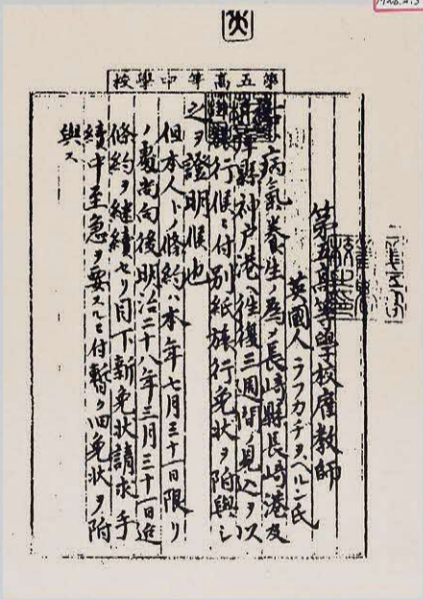 第五高等中學校
第五高等學校雇教師
英國人ラフカヂヲヘルン氏
病氣養生ノ為メ長崎縣長崎港及
庫縣神戸港ヘ往復三週間ノ見込ヲ以
旅行候ニ付別紙旅行免状ヲ附與シ
之ヲ證明候也
但本人トノ條約ハ本年七月三十一日限リ
ノ處尚向後明治二十八年三月三十一日迄
條約ヲ継續セリ目下新免状請求手
續中至急ヲ要スルニ付暫ク旧免状ヲ附
與ス